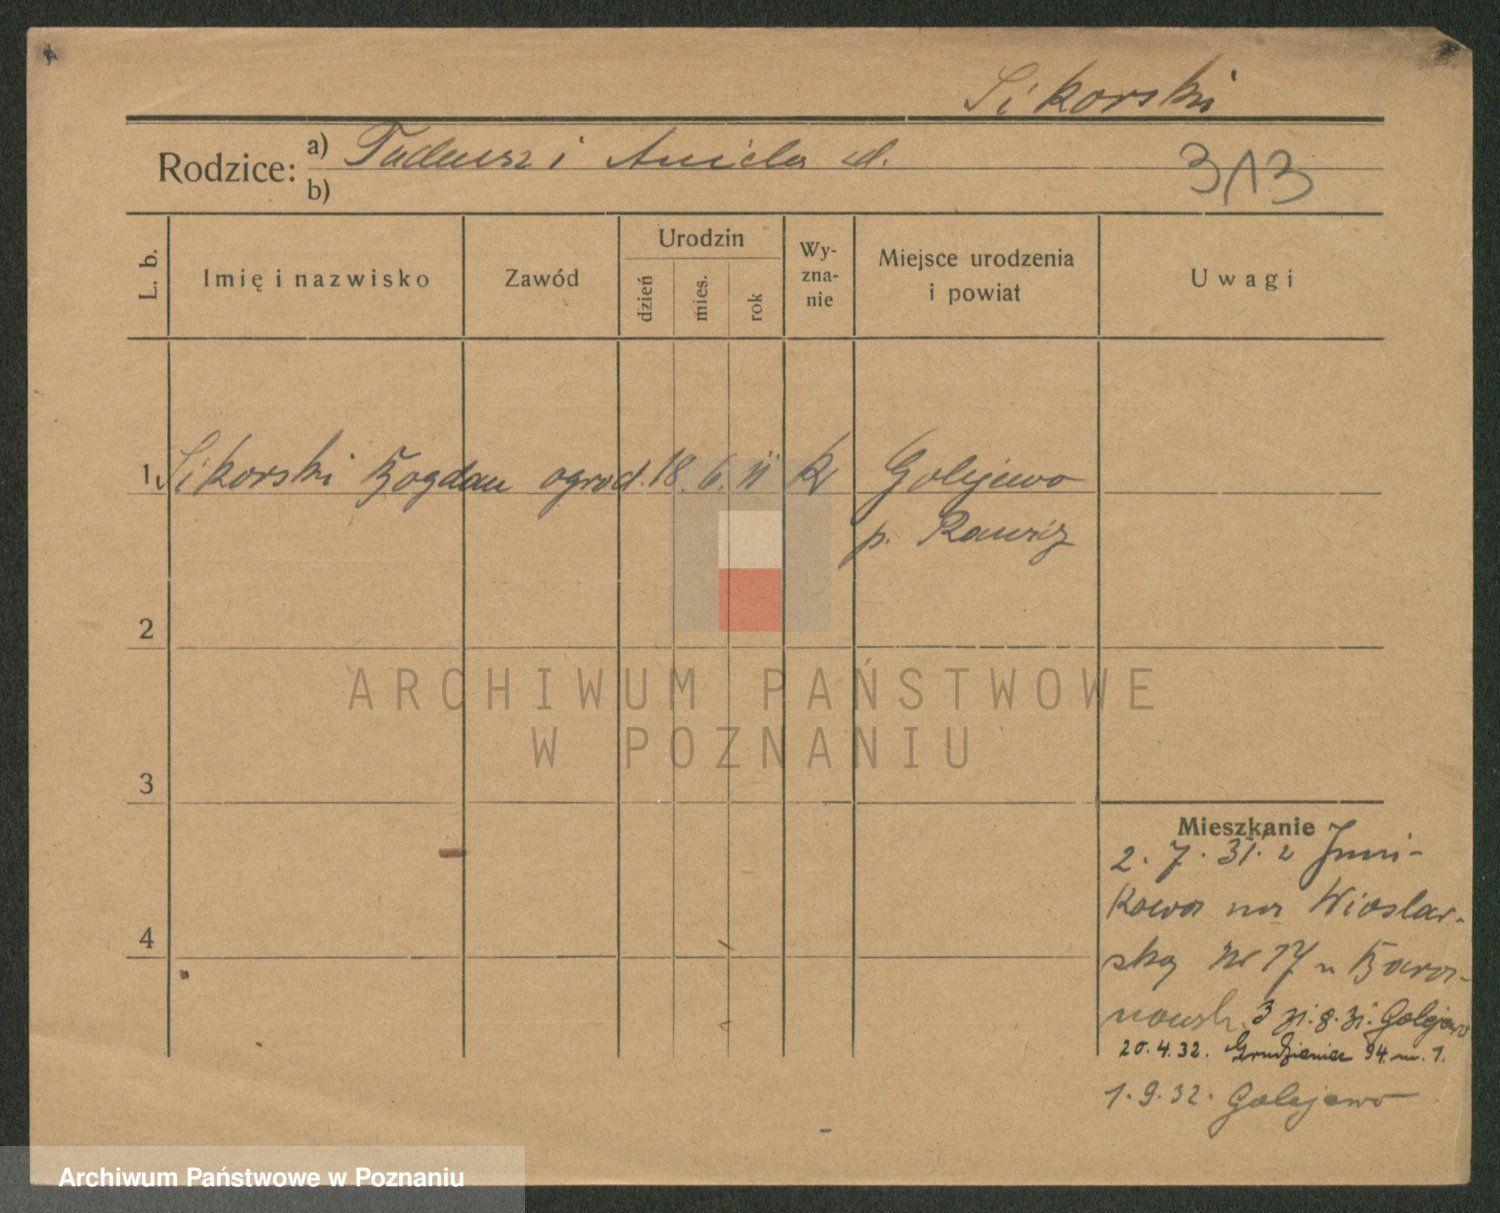 Sikorski
Rodzice: a) Tadeusz i Aniela d.
b)
313
L. b.
Imię i nazwisko
Zawód
Urodzin
dzień
mies.
rok
Wy-
zna-
nie
Miejsce urodzenia
i powiat
Uwagi
1 Sikorski Bogdan ogrod. 18. 6. 11 k Golejewo
p. Rawicz
2
3
4
Mieszkanie
2. 7. 31. z Juni-
kowa na Wioslar-
ską Nr 17 u Bara-
nowsk. 3 31. 8. 31. Golejewo
20. 4. 32. Grudzieniec 94. m. 1.
1. 9. 32. Golejewo
ARCHIWUM PAŃSTWOWE
W POZNANIU
Archiwum Państwowe w Poznaniu